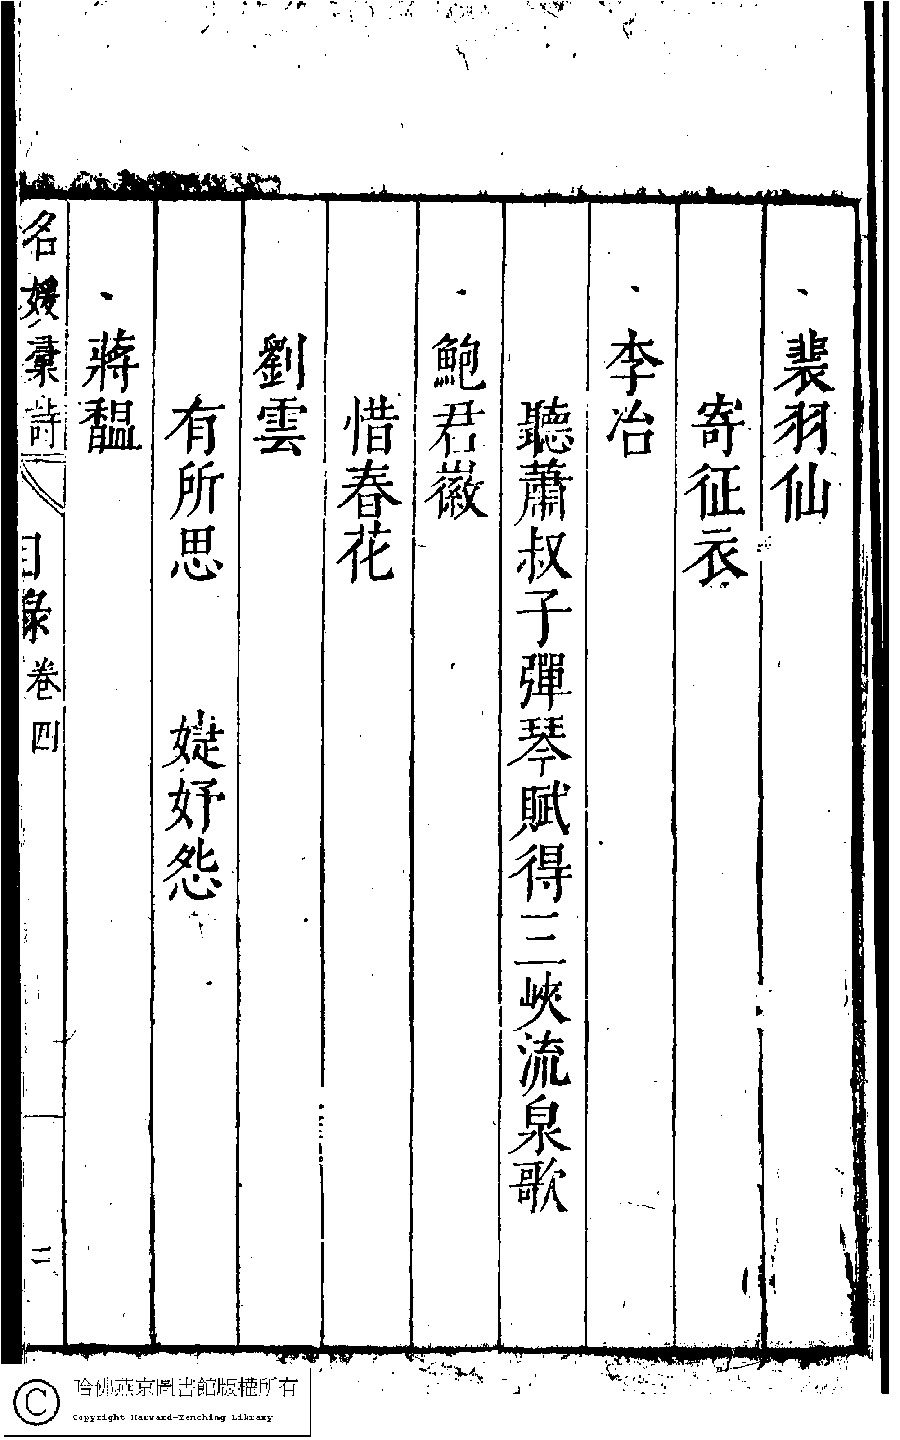 裴羽仙
寄征衣
李冶
聽蕭叔子彈琴賦得三峽流泉歌
鮑君徽
惜春花
劉雲
有所思 婕妤怨
蔣馧
名媛彙詩 目錄 卷四 二
哈佛燕京圖書館版權所有
Copyright Harvard-Yenching Library